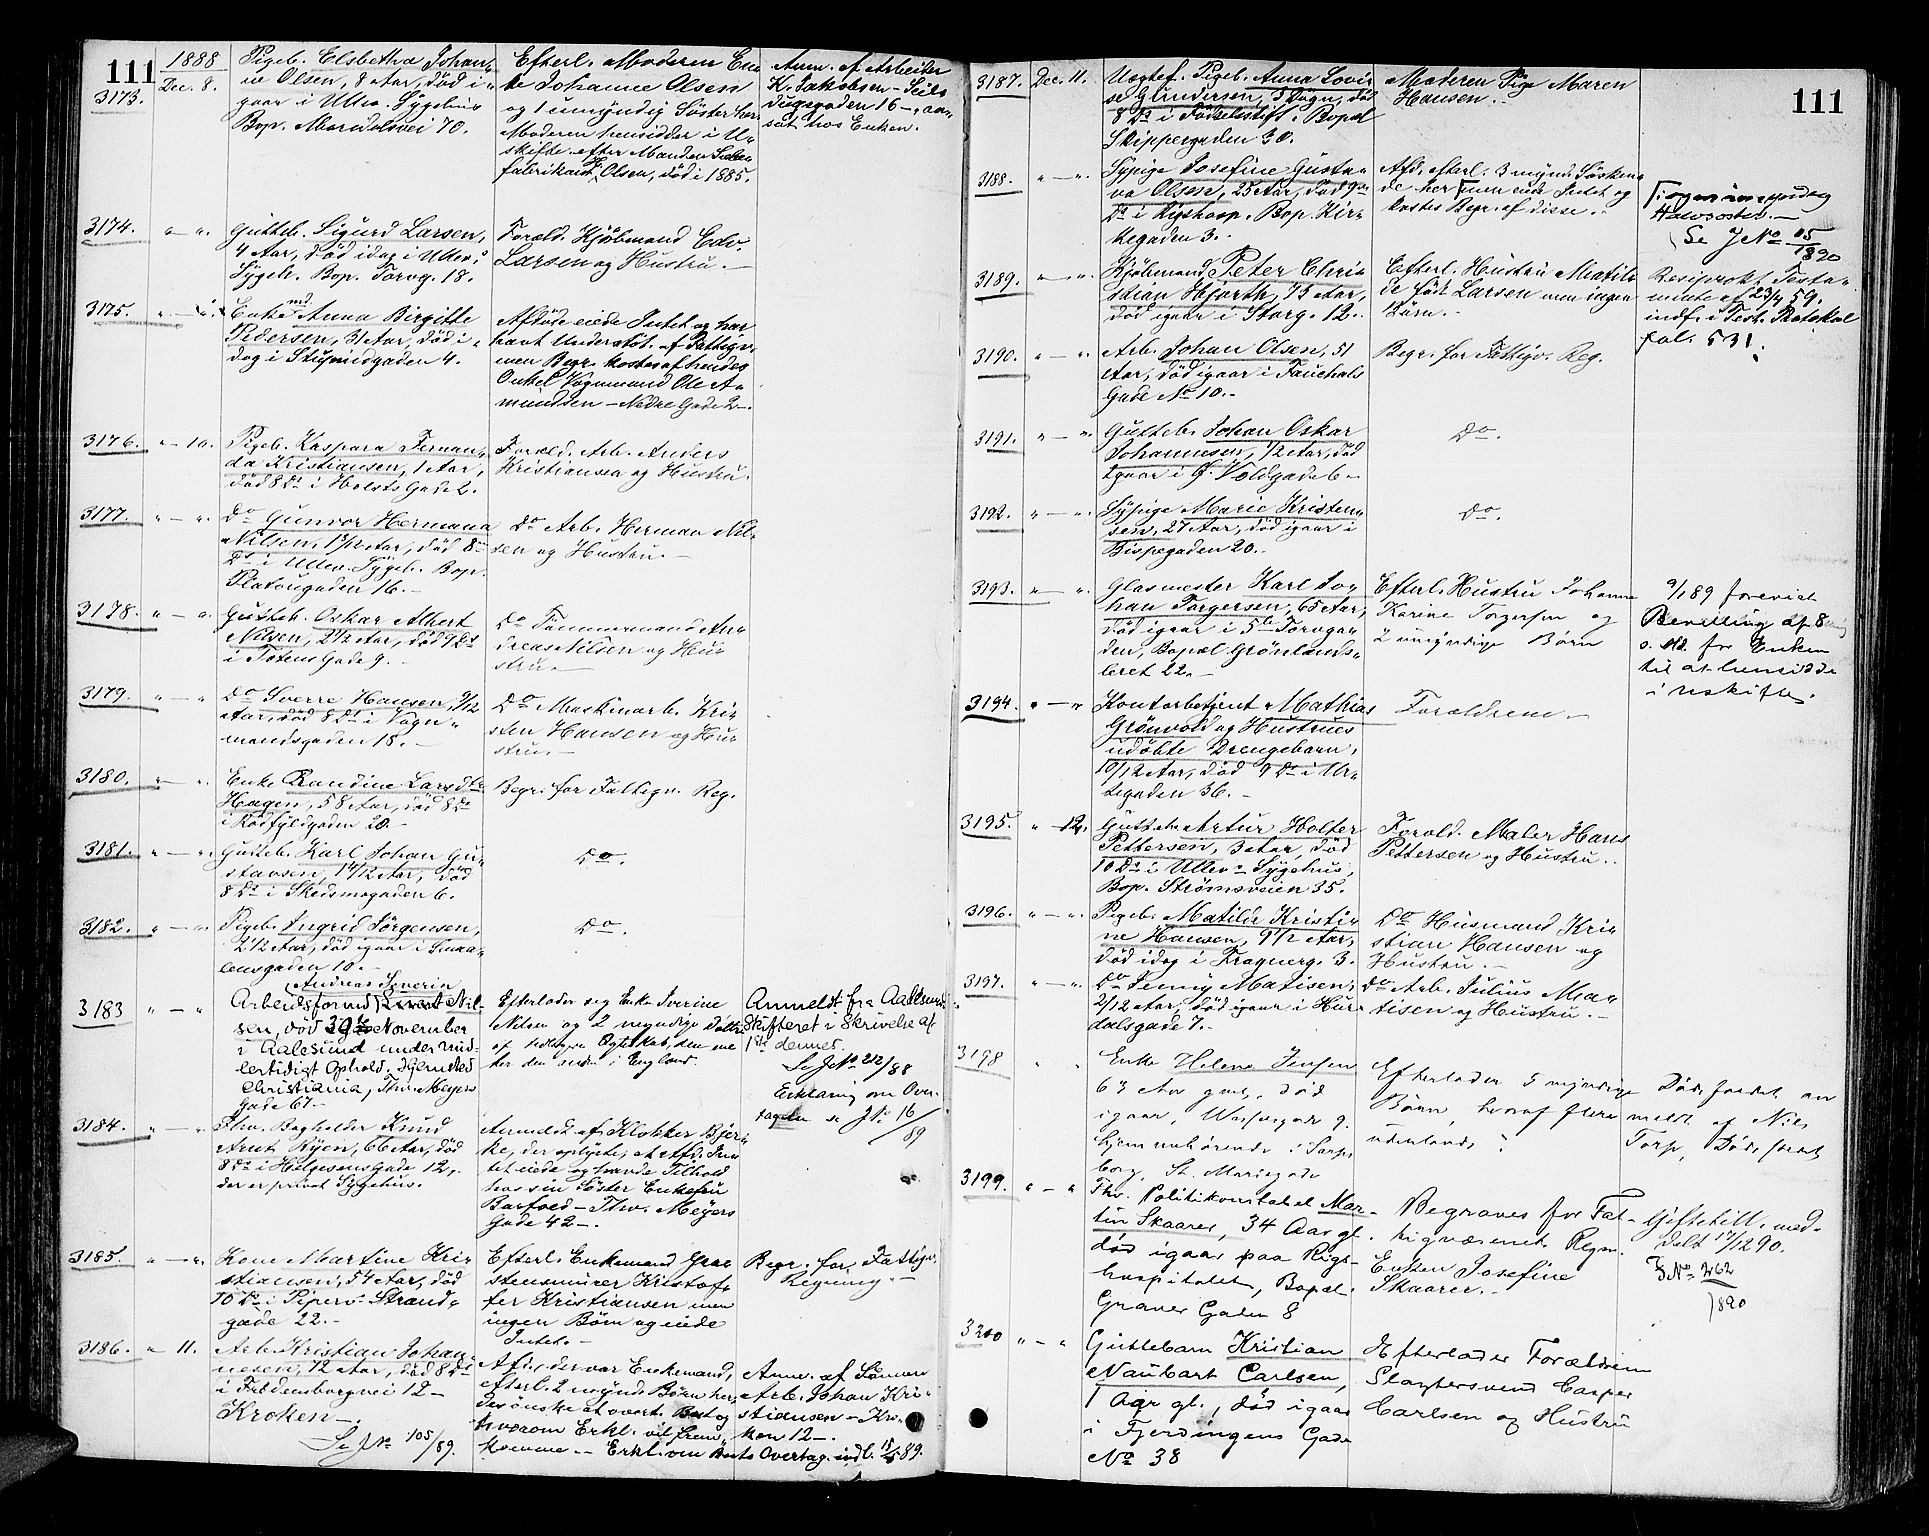 111
1888
3173. Dec. 8. Pigeb. Elsbetha Johan-
ne Olsen, 8 Aar, død i-
gaar i Ullev. Sygehus
Bop. Maridalsvei 70.
Efterl. Moderen En-
ke Johanne Olsen
og 1 umyndig Søster her
Moderen hensidder i U-
skifte efter Manden
fabrikant H. Olsen, død i 1885.
Anm. af Arbeider
K. Jakobsen - Seils-
dugsgaden 16 -
hos Enken.
3174. " — " Gutteb. Sigurd Larsen,
4 Aar, død idag i Ullev.
Sygeh. Bop. Torvg. 18.
Foræld. Kjøbmand Edv.
Larsen og Hustru. —
3175. " — " Enkemd. Anna Birgitte
Pedersen, 31 Aar, død i-
dag i Stupinedgaden 4.
Afdøde eiede Intet og har
havt Understøt. af Fattigv.
men Begr. kostes af hendes
Onkel Vognmand Ole A-
mundsen — Nedre Gade 2 —.
3176. " — 10. Pigeb. Kaspara Fernan-
da Kristiansen, 1 Aar,
død 8 Ds i Holsts Gade 2.
Foræld. Arb. Anders
Kristiansen og Hustru.
3177. " — " Do Gunvor Hermana
Nilsen, 1 3/12 Aar, død 8de
Ds i Ullev. Sygeh. Bop.
Platougaden 16. —
Do Arb. Herman Nil-
sen og Hustru. —
3178. " — " Gutteb. Oskar Albert
Nilsen, 2 1/2 Aar, død 9 Ds
i Totens Gade 9. —
Do Tømmermand An-
dreas Nilsen og Hus-
tru. —
3179. " — " Do Sverre Hansen, 9/12
Aar, død 8 Ds i Vogn-
mandsgaden 15. —
Do Maskinarb. Kri-
sten Hansen og Hus-
tru. —
3180. " — " Enke Randine Larsdtr.
Hagen, 58 Aar, død 8 Ds
i Rødfyldgaden 20. —
Begr. for Fattigv. Reg.
3181. " — " Gutteb. Karl Johan Gu-
stavsen, 1 4/12 Aar, død
8 Ds i Skedsmogaden 6.
Do.
3182. " — " Pigeb. Ingrid Jørgensen,
2 1/2 Aar, død igaar i Smaa-
lensgaden 10. —
Do.
Andreas Severin
3183 " — " Arbeidsformd Nil-
sen, død 30te November
i Aalesund under mid-
lertidigt Ophold. Hjemsted
Christiania, Thv. Meyers
Gade 67 —
Efterlader sig Enke Iverine
Nilsen og 2 myndige Døttre
af tidligere Ægteskab, den ene
her den anden i England.
Anmeldt fra Aalesund
Skifteret i Skrivelse af
1ste dennes.
Se J No 212/88
Erklæring om Over-
tagelse se J No 16/89
3184. " — " Fhv. Bogholder Knud
Arnt Ryen, 66 Aar, død
8 Ds i Helgesens Gade 12,
der er privat Sygehus.
Anmeldt af Klokker Bjer-
ke, der oplyste, at Afd. In-
tet eiede og havde Tilhold
hos sin Søster Enkefru
Barfoed — Thv. Meyers
Gade 42 —.
3185. " — " Kone Martine Kri-
stiansen, 54 Aar, død
10 Ds i Piperv. Strand-
gade 22. —
Efterl. Enkemand Graa-
stensmurer Kristof-
fer Kristiansen men
ingen Børn og eiede
Intet. —
Begr. for Fattigv.
Regning. —
3186. " 11. Arb. Kristian Johan-
nesen, 72 Aar, død 8 Ds
i Fældensborgvei 12 —
Kroken —.
Se J No 105/89.
Afd., der var Enkemand,
efterl. 2 mynd. Børn her,
der ønske at overt. Boet og
hvorom Erkl. vil frem-
komme. — Erkl. om Boets Overtag. indl. 15/1 89.
Anm. af Sønnen
Arb. Johan Kri-
stiansen — Kro-
ken 12 —.
111
3187. Dec. 11. Uægtef. Pigeb. Anna Lovi-
se Gundersen, 5 Døgn, død
8 Ds i Fødselsstift. Bopæl
Skippergaden 30.
Moderen Pige Maren
Hansen. —
3188. " — " Sypige Josefine Gusta-
va Olsen, 25 Aar, død 9de
Ds i Rigshosp. Bop. Kir-
kegaden 3. —
Afd. efterl. 3 mynd. Søsken-
de her men eiede Intet og
kostes Begr. af disse. —
Halvsøster. —
Se J No 05/1890
3189. " — " Kjøbmand Peter Chri-
stian Hjorth, 75 Aar,
død igaar i Storg. 12. —
Efterl. Hustru Matil-
de født Larsen men ingen
Børn. —
Resiprokt Testa-
mente af 23/7 59.
indf. i Test. Protokol
fol. 531.
3190. " — " Arb. Johan Olsen, 51
Aar, død igaar i Fauchals
Gade No 10. —
Begr. for Fattigv. Reg.
3191. " — " Gutteb. Johan Oskar
Johannesen, 1/2 Aar, død
igaar i Ø. Voldgade 6 —
Do.
3192. " — " Sypige Marie Kristen-
sen, 27 Aar, død igaar i
Bispegaden 20. —
Do.
3193. " — " Glasmester Karl Jo-
han Torgersen, 65 Aar,
død igaar i 5te Torvga-
den, Bopæl Grønlands-
leret 22. —
Efterl. Hustru Johanne
Karine Torgersen og
2 umyndige Børn
9/1 89 forevist
Bevilling af 8
s. M. for Enken
til at hensidde
i uskifte.
3194. " — " Kontorbetjent Mathias
Grønvold og Hustrues
udøbte Drengebarn,
10/12 Aar, død 9 Ds i Ur-
tegaden 36. —
Forældrene —
3195. " 12. Gutteb. Artur Holter
Pettersen, 3 Aar, død
10 Ds i Ullev. Sygehus,
Bop. Strømsveien 35.
Foræld. Maler Hans
Pettersen og Hustru. —
3196. " — " Pigeb. Matilde Kristi-
ne Hansen, 9 1/2 Aar,
død idag i Fragnerg. 3.
Do Husmand Kri-
stian Hansen og
Hustru. —
3197. " — " Do Jenny Matisen,
2/12 Aar, død igaar i Hur-
dalsgade 7. —
Do Arb. Julius Ma-
tisen og Hustru. —
3198 " " Enke Helene Jensen
63 Aar gml., død
igaar,
hjemmehørende i Sarps-
borg, St. Mariegade
Efterlader 5 myndige
Børn, hvoraf flere
udenlands.
Dødsfaldet an-
meldt af Nils
Torp,
3199. " — " Fhv. Politikonstabel Mar-
tin Skaarer, 34 Aar gl.
død igaar paa Rigs-
hospitalet, Bopæl.
Graner Gaden 8
Begraves for Fat-
tigvæsenets Regn.
Enken Josefine
Skaarer. —
Giftetill. med-
delt 17/12 90.
J No 262/1890
3200 " — " Guttebarn Kristian
Naubart Carlsen,
1 Aar gl., død igaar
i Fjerdingens Gade
No 38
Efterlader Forældrene
Slagtersvend Casper
Carlsen og Hustru